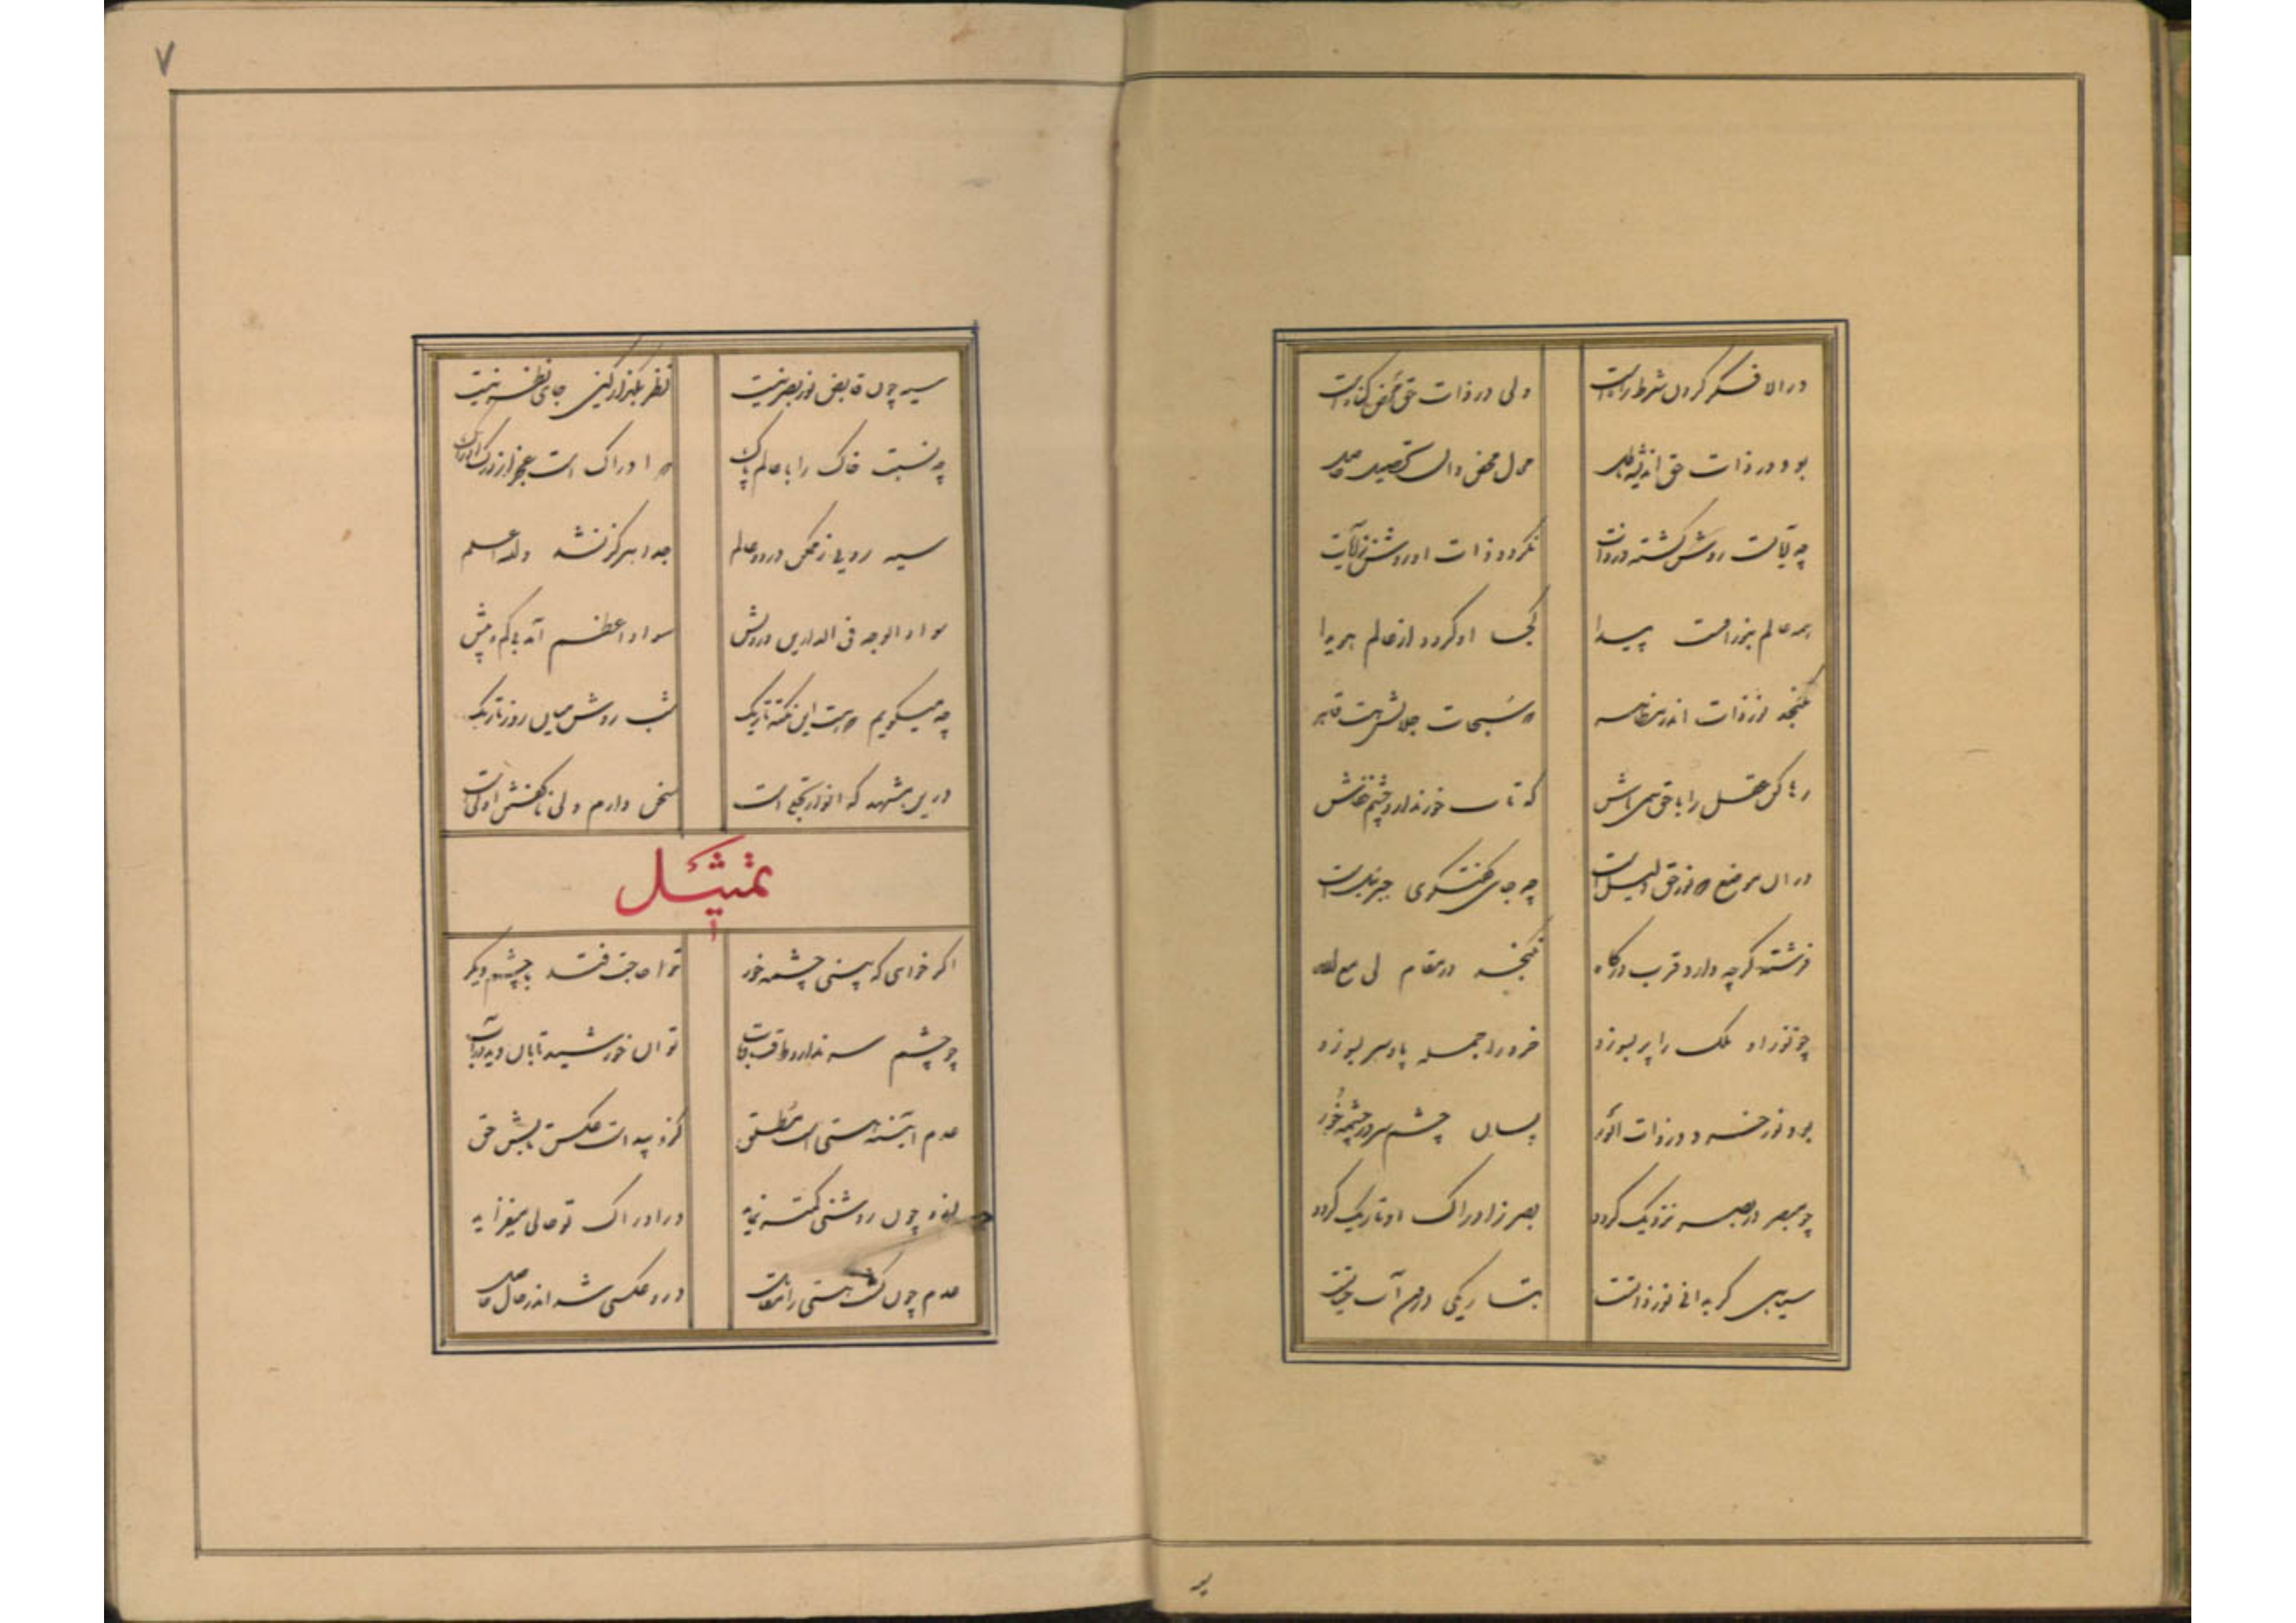 در الا فکر کردن شرط راه است ولی در ذات حق محض گناه است
بود در ذات حق اندیشه باطل محال محض دان تحصیل حاصل
چه آیات است روشن گشته در ذات نگردد ذات او روشن ز آیات
همه عالم بنور اوست پیدا کجا او گردد از عالم هویدا
نگنجد نور ذات اندر مظاهر که سُبحات جلالش هست قاهر
رها کن عقل را با حق همی باش که تاب خور ندارد چشم خفاش
در آن موضع که نور حق دلیل است چه جای گفتگوی جبرئیل است
فرشته گرچه دارد قرب درگاه نگنجد در مقام لی مع الله
چو نور او ملک را پر بسوزد خرد را جمله پا و سر بسوزد
بود نور خرد در ذات انور بسان چشم سر در چشمه خُور
چو مبصر در بصر نزدیک گردد بصر ز ادراک او تاریک گردد
سیاهی گر بدانی نور ذاتست بتاریکی درون آب حیاتست
۷
سیه چون قابض نور بصر نیست نظر بگذار کینجا جای نظر نیست
چه نسبت خاک را با عالم پاک که ادراک است عجز از درک ادراک
سیه رویی ز ممکن در دو عالم جدا هرگز نشد والله اعلم
سواد الوجه فی الدارین درویش سواد اعظم آمد بی کم و بیش
چه میگویم که هست این نکته تاریک شب روشن میان روز تاریک
درین مشهد که انوار تجلی است سخن دارم ولی ناگفتنش اولی است
تمثیل
اگر خواهی که بینی چشمه خور تو را حاجت فتد با چشم دیگر
چو چشم سر ندارد طاقت تاب توان خورشید تابان دید در آب
عدم آیینه هستی است مُطلق کزو پیداست عکس تابش حق
شود چون روشنی کمتر نماید در ادراک تو حالی میفزاید
عدم چون گشت هستی را مقابل درو عکسی شد اندر حال حاصل